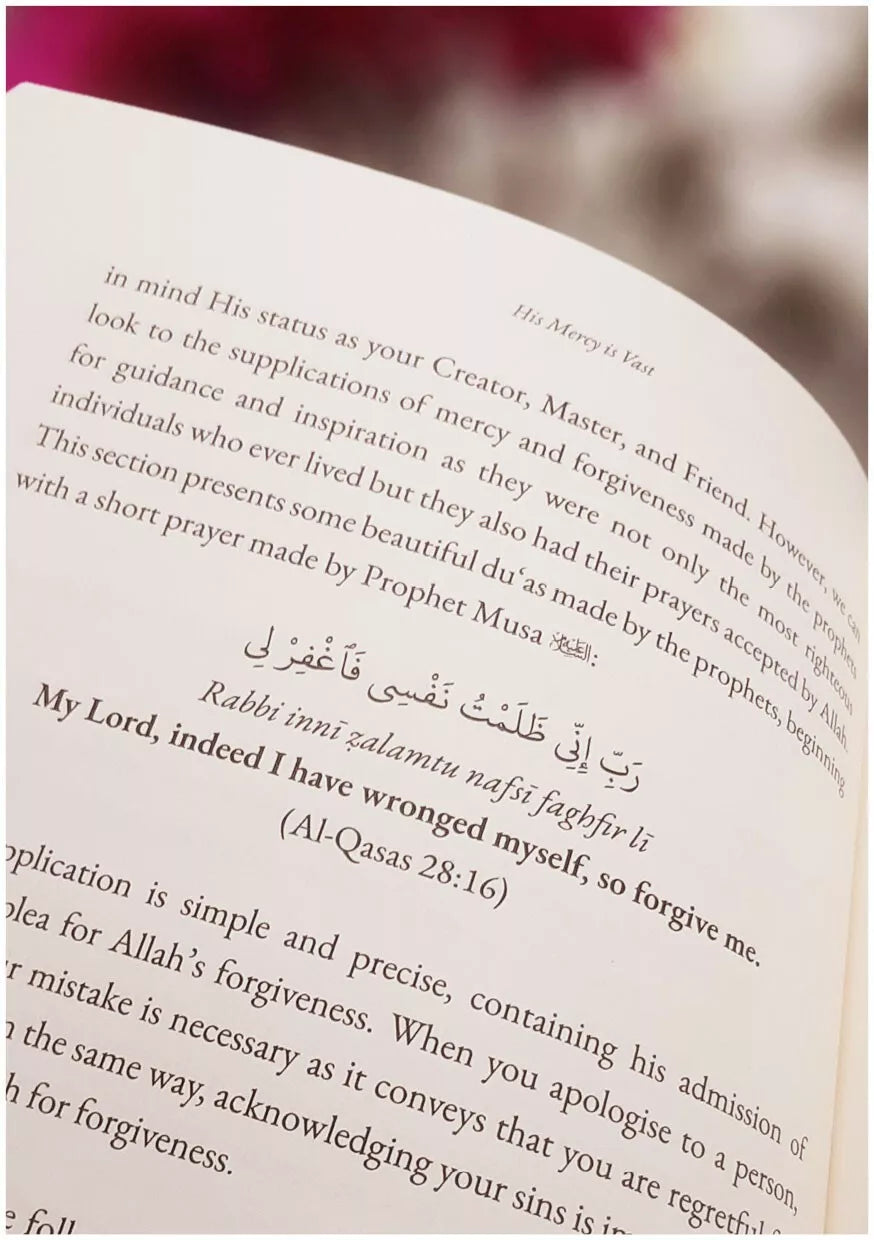 His Mercy is Vast
in mind His status as your Creator, Master, and Friend. However, we can
look to the supplications of mercy and forgiveness made by the prophets
for guidance and inspiration as they were not only the most righteous
individuals who ever lived but they also had their prayers accepted by Allah.
This section presents some beautiful du‘as made by the prophets, beginning
with a short prayer made by Prophet Musa :
رَبِّ إِنِّي ظَلَمْتُ نَفْسِى فَٱغْفِرْ لِي
Rabbi innī ẓalamtu nafsī faghfir lī
My Lord, indeed I have wronged myself, so forgive me.
(Al-Qasas 28:16)
is simple and precise, containing his admission of
plea for Allah’s forgiveness. When you apologise to a person,
mistake is necessary as it conveys that you are regretful
the same way, acknowledging your sins is
for forgiveness.